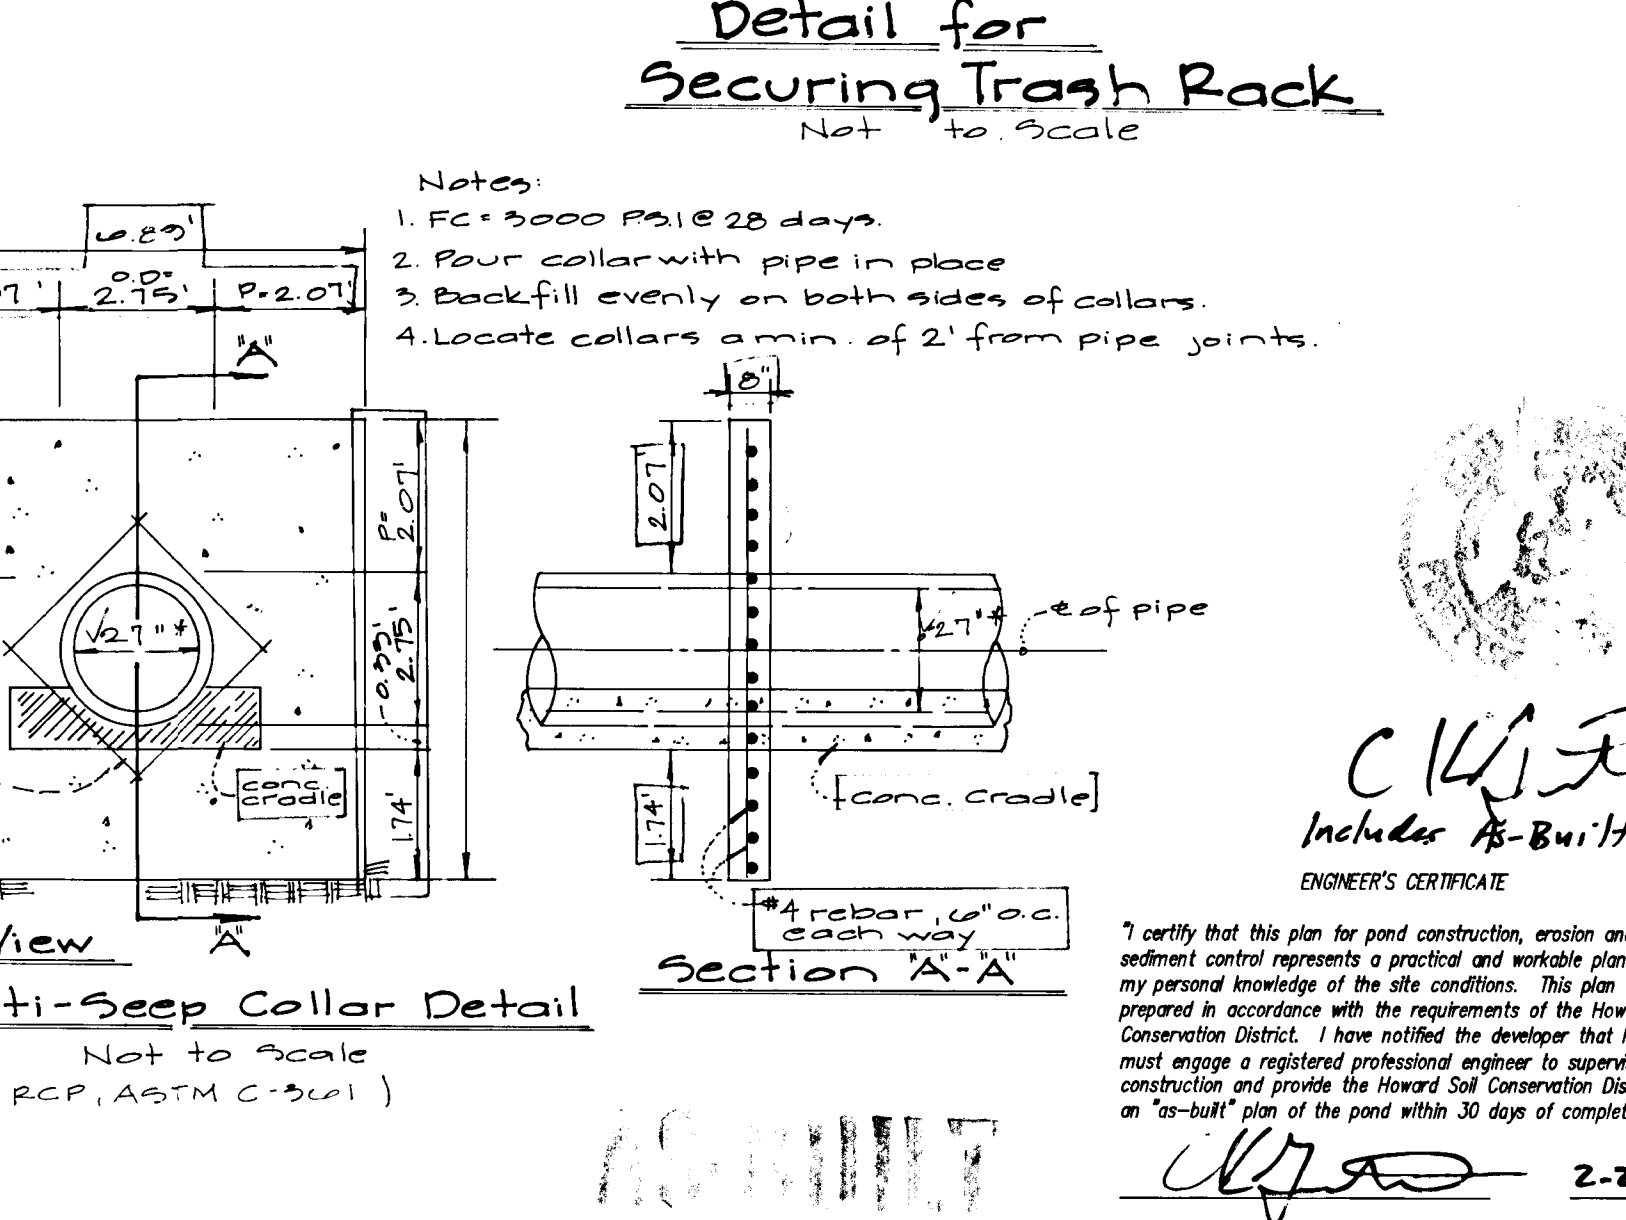 Detail for
Securing Trash Rack
Not to Scale
Notes:
1. FC = 3000 P.S.I @ 28 days.
2. Pour collar with pipe in place
3. Backfill evenly on both sides of collars.
4. Locate collars a min. of 2' from pipe joints.
O.D=
2.75'
P=2.07'
"A"
8"
P=
2.07'
2.07'
√27"*
2.75'
√27"*
℄ of pipe
conc.
cradle]
1.74'
1.74'
[conc. cradle]
#4 rebar, 6" o.c.
each way
"A"
View
Section "A"-"A"
ti-Seep Collar Detail
Not to Scale
RCP, ASTM C-361)
Includes As-Built
ENGINEER'S CERTIFICATE
"I certify that this plan for pond construction, erosion and
sediment control represents a practical and workable plan
my personal knowledge of the site conditions. This plan
prepared in accordance with the requirements of the How
Conservation District. I have notified the developer that
must engage a registered professional engineer to supervi
construction and provide the Howard Soil Conservation Dis
an "as-built" plan of the pond within 30 days of complet
AS BUILT